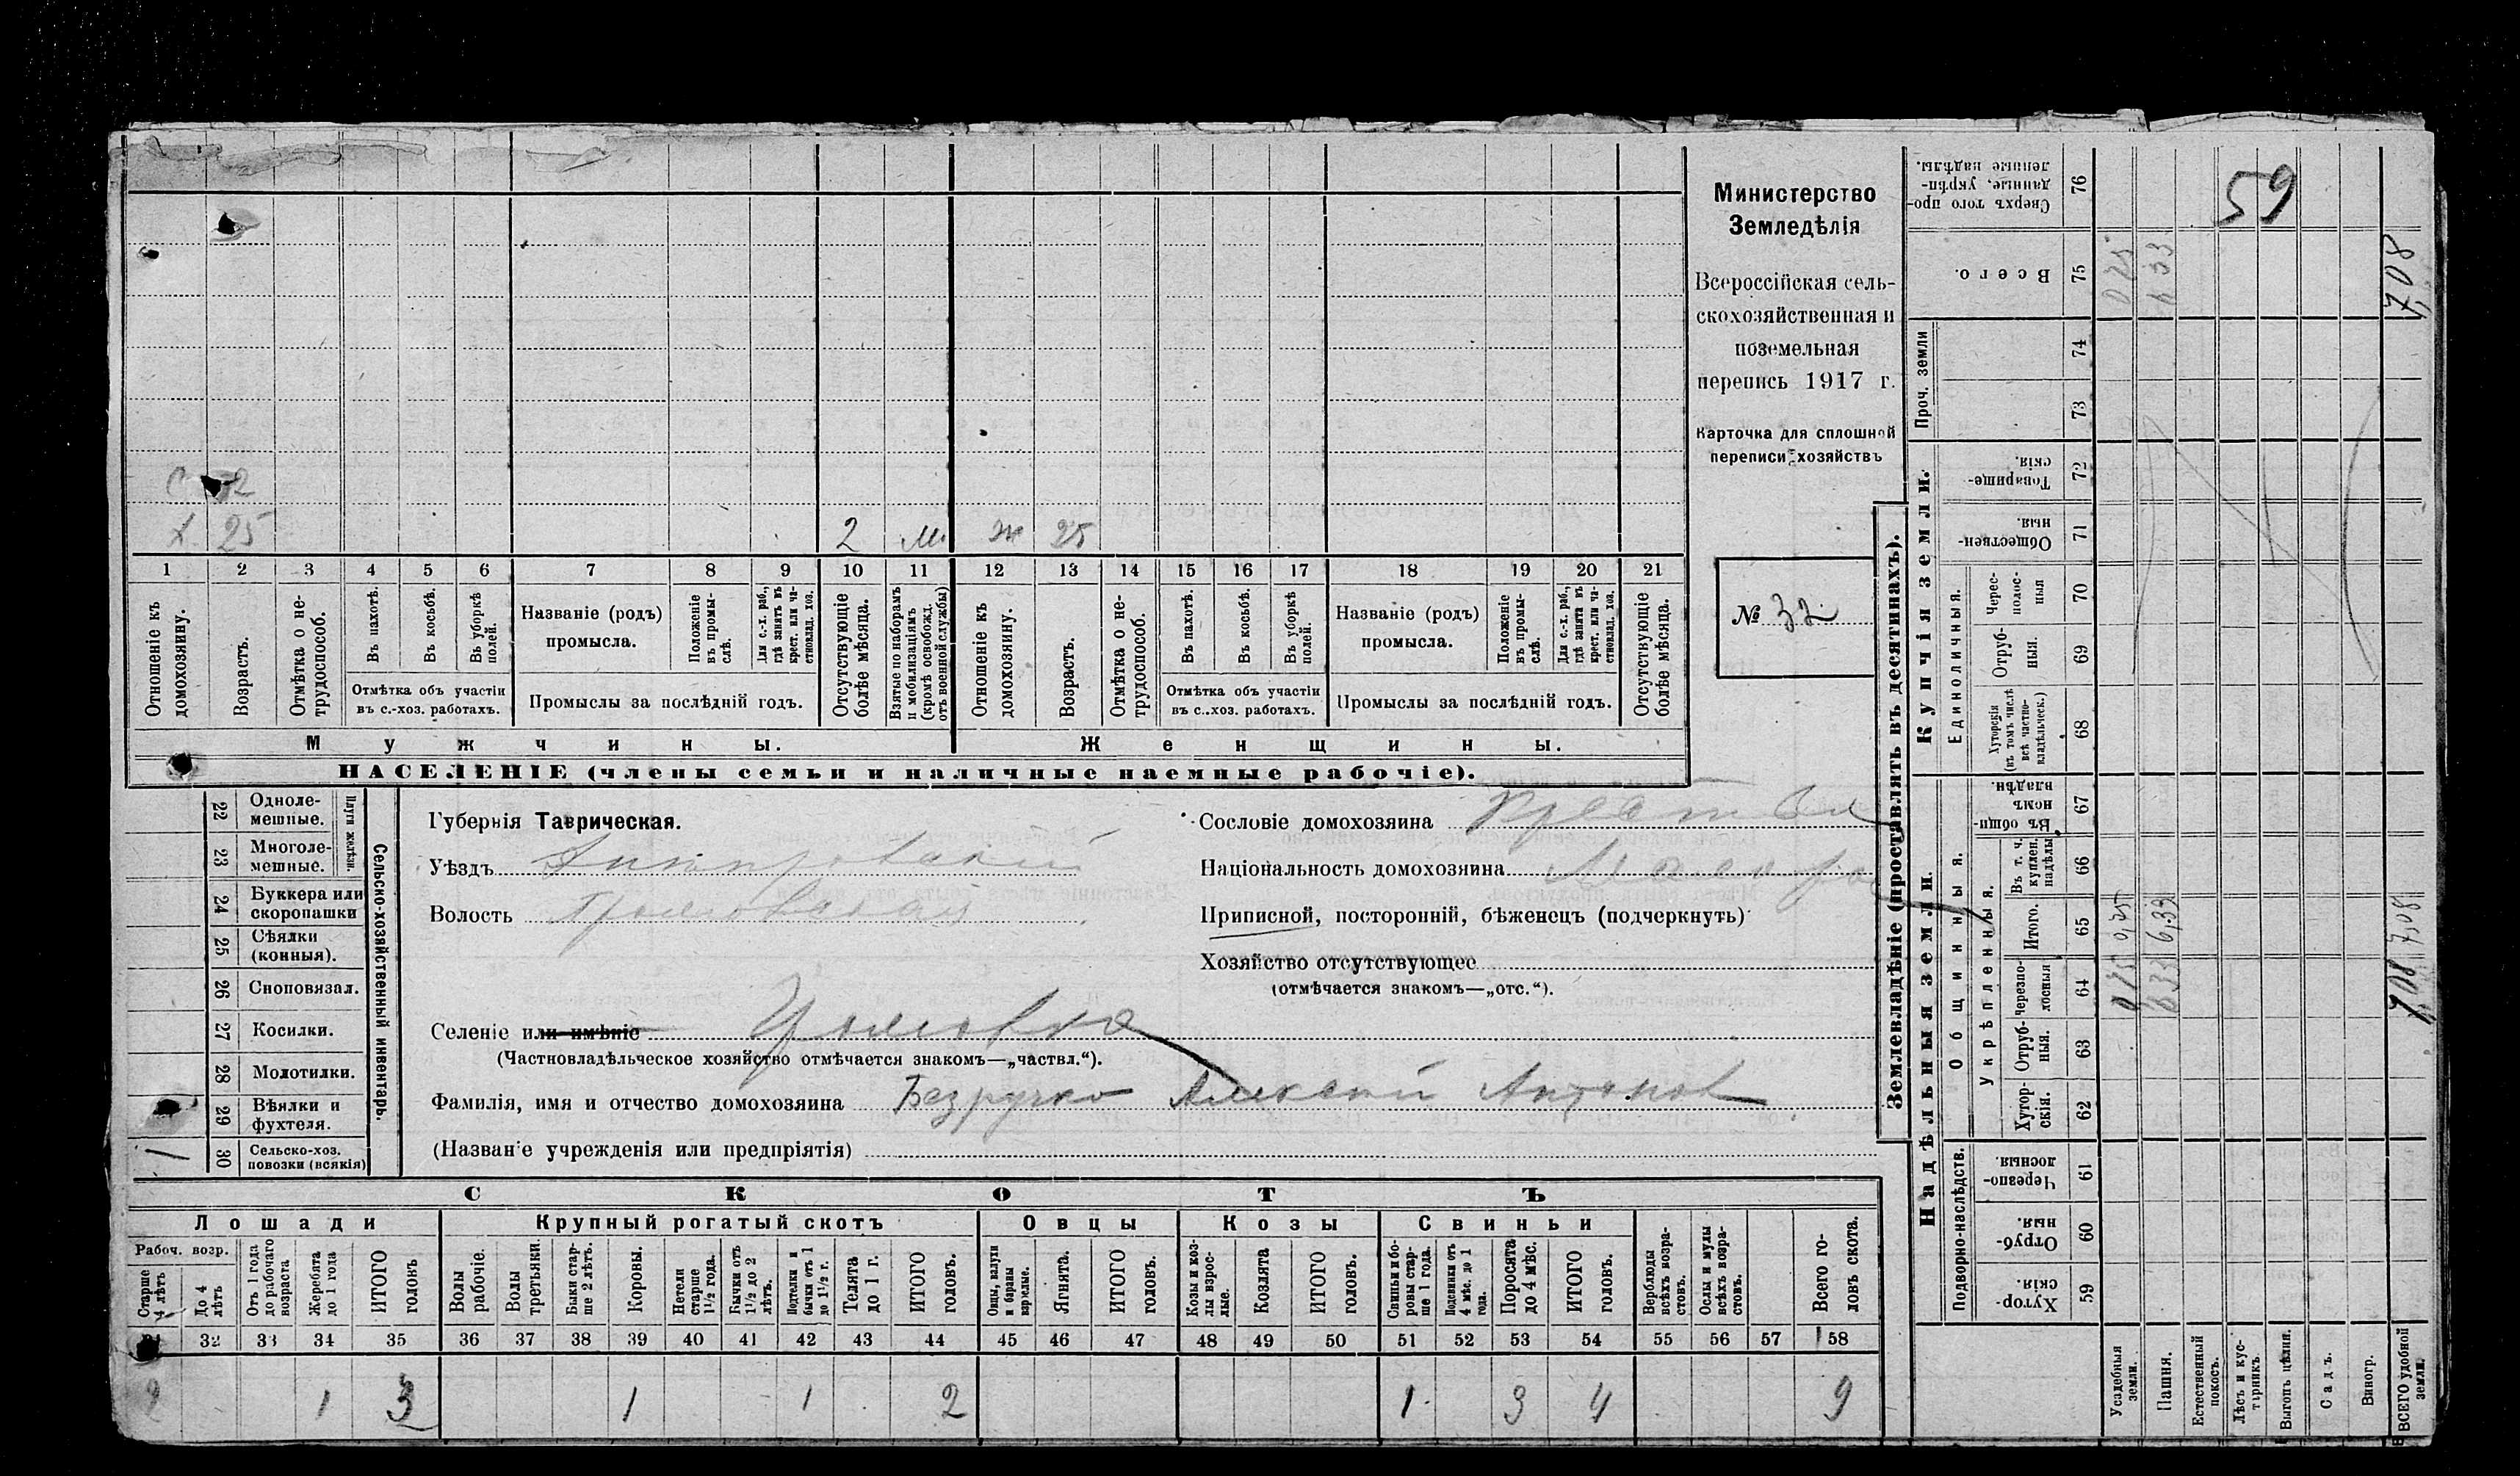 Министерство
Земледѣлія
Всероссійская сель-
скохозяйственная и
поземельная
перепись 1917 г.
Карточка для сплошной
переписи хозяйствъ
№ 32
59
2
Х 25 2 М. Ж 25
1 2 3 4 5 6 7 8 9 10 11 12 13 14 15 16 17 18 19 20 21
Отношеніе къ домохозяину.
Возрастъ.
Отмѣтка о не-трудоспособ.
Въ пахотѣ.
Въ косьбѣ.
Въ уборкѣ полей.
Отмѣтка объ участіи
въ с.-хоз. работахъ.
Названіе (родъ)
промысла.
Положеніе въ промы-слѣ.
Для с.-х. раб., гдѣ занятъ въ крест. или ча-стновлад. хоз.
Промыслы за послѣдній годъ.
Отсутствующіе болѣе мѣсяца.
Взятые по наборамъ и мобилизаціямъ (кромѣ освобожд. отъ военной службы)
Отношеніе къ домохозяину.
Возрастъ.
Отмѣтка о не-трудоспособ.
Въ пахотѣ.
Въ косьбѣ.
Въ уборкѣ полей.
Отмѣтка объ участіи
въ с..-хоз. работахъ.
Названіе (родъ)
промысла.
Положеніе въ промы-слѣ.
Для с.-х. раб., гдѣ занята въ крест. или ча-стновлад. хоз.
Промыслы за послѣдній годъ.
Отсутствующіе болѣе мѣсяца.
Мужчины. Женщины.
НАСЕЛЕНІЕ (члены семьи и наличные наемные рабочіе).
Сельско-хозяйственный инвентарь.
Плуги желѣзн.
22 Одноле-мешные.
23 Многоле-мешные.
24 Буккера или скоропашки
25 Сѣялки (конныя).
26 Сноповязал.
27 Косилки.
28 Молотилки.
29 Вѣялки и фухтеля.
1 30 Сельско-хоз. повозки (всякія)
Губернія Таврическая.
Уѣздъ Днѣпровскій
Волость
Сословіе домохозяина
Національность домохозяина Малорос
Приписной, посторонній, бѣженецъ (подчеркнуть)
Хозяйство отсутствующее
(отмѣчается знакомъ—„отс.“).
Селеніе или имѣніе
(Частновладѣльческое хозяйство отмѣчается знакомъ—„частвл.“).
Фамилія, имя и отчество домохозяина Безручко Алексѣй Антонов
(Названіе учрежденія или предпріятія)
СКОТЪ
Лошади Крупный рогатый скотъ Овцы Козы Свиньи
Рабоч. возр.
Старше 4 лѣтъ
До 4 лѣтъ
Отъ 1 года до рабочаго возраста
Жеребята до 1 года
ИТОГО головъ
Волы рабочіе.
Волы третьяки.
Быки стар-ше 2 лѣтъ.
Коровы.
Нетели старше 1½ года.
Бычки отъ 1½ до 2 лѣтъ.
Подтелки и бычки отъ 1 до 1½ г.
Телята до 1 г.
ИТОГО головъ.
Овцы, валухи и бараны взрослые.
Ягнята.
ИТОГО головъ.
Козы и коз-лы взрос-лые.
Козлята
ИТОГО головъ.
Свиньи и бо-ровы стар-ше 1 года.
Подсвинки отъ 4 мѣс. до 1 года.
Поросята до 4 мѣс.
ИТОГО головъ.
Верблюды всѣхъ возра-стовъ.
Ослы и мулы всѣхъ возра-стовъ.
Всего го-ловъ скота.
31 32 33 34 35 36 37 38 39 40 41 42 43 44 45 46 47 48 49 50 51 52 53 54 55 56 57 58
2 1 3 1 1 2 1 3 4 9
Землевладѣніе (проставлять въ десятинахъ).
Надѣльныя земли. Купчія земли. Проч. земли
Подворно-наслѣдств.
Общинныя.
Укрѣпленныя.
Единоличныя.
Сверхъ того про-данные, укрѣп-ленные надѣлы. 76
Всего. 75 0 25 6 33 7,08
74
73
Товарище-скія. 72
Обществен-ныя. 71
Черес-полос-ныя 70
Отруб-ныя. 69
Хуторскія (въ томъ числѣ всѣ частно-владѣльческ.) 68
Въ общи-номъ владѣн. 67
Въ т. ч. куплен. надѣлы 66
Итого. 65 0,25 6,33 7,08
Черезпо-лосныя 64 6 33 7,08
Отруб-ныя. 63
Хутор-скія. 62
Черезпо-лосныя. 61
Отруб-ныя. 60
Хутор-скія. 59
Усадебныя земли.
Пашня.
Естественный покосъ.
Лѣсъ и кус-тарникъ.
Выгонъ цѣлин.
Садъ.
Виногр.
ВСЕГО удобной земли.